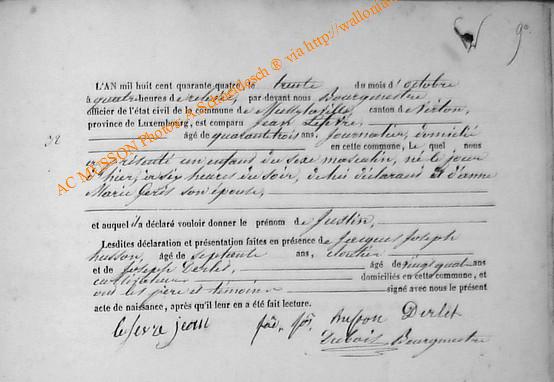 9e
L'AN mil huit cent quarante quatre, le trente du mois d'octobre
à quatre heures de relevée, par-devant nous Bourgmestre
officier de l'état civil de la commune de canton de Virton,
province de Luxembourg, est comparu Jean Lefevre,
32
âgé de quarante trois ans, journalier, domicilié
en cette commune, Le quel nous
a présenté un enfant du sexe masculin, né le jour
d'hier, à six heures du soir, de lui déclarant et d'anne
Marie son épouse,
et auquel il a déclaré vouloir donner le prénom de Justin,
Lesdites déclaration et présentation faites en présence de Jacques Joseph
husson, âgé de septante ans, cloutier
et de Joseph Derlet, âgé de vingt quatre ans
cultivateur domiciliés en cette commune, et
ont les père et témoins signé avec nous le présent
acte de naissance, après qu'il leur en a été fait lecture.
lefevre jean husson Derlet
Dubois Bourgmestre
AC MUSSON Photos: A. Scheidesch ® via http://wallonia